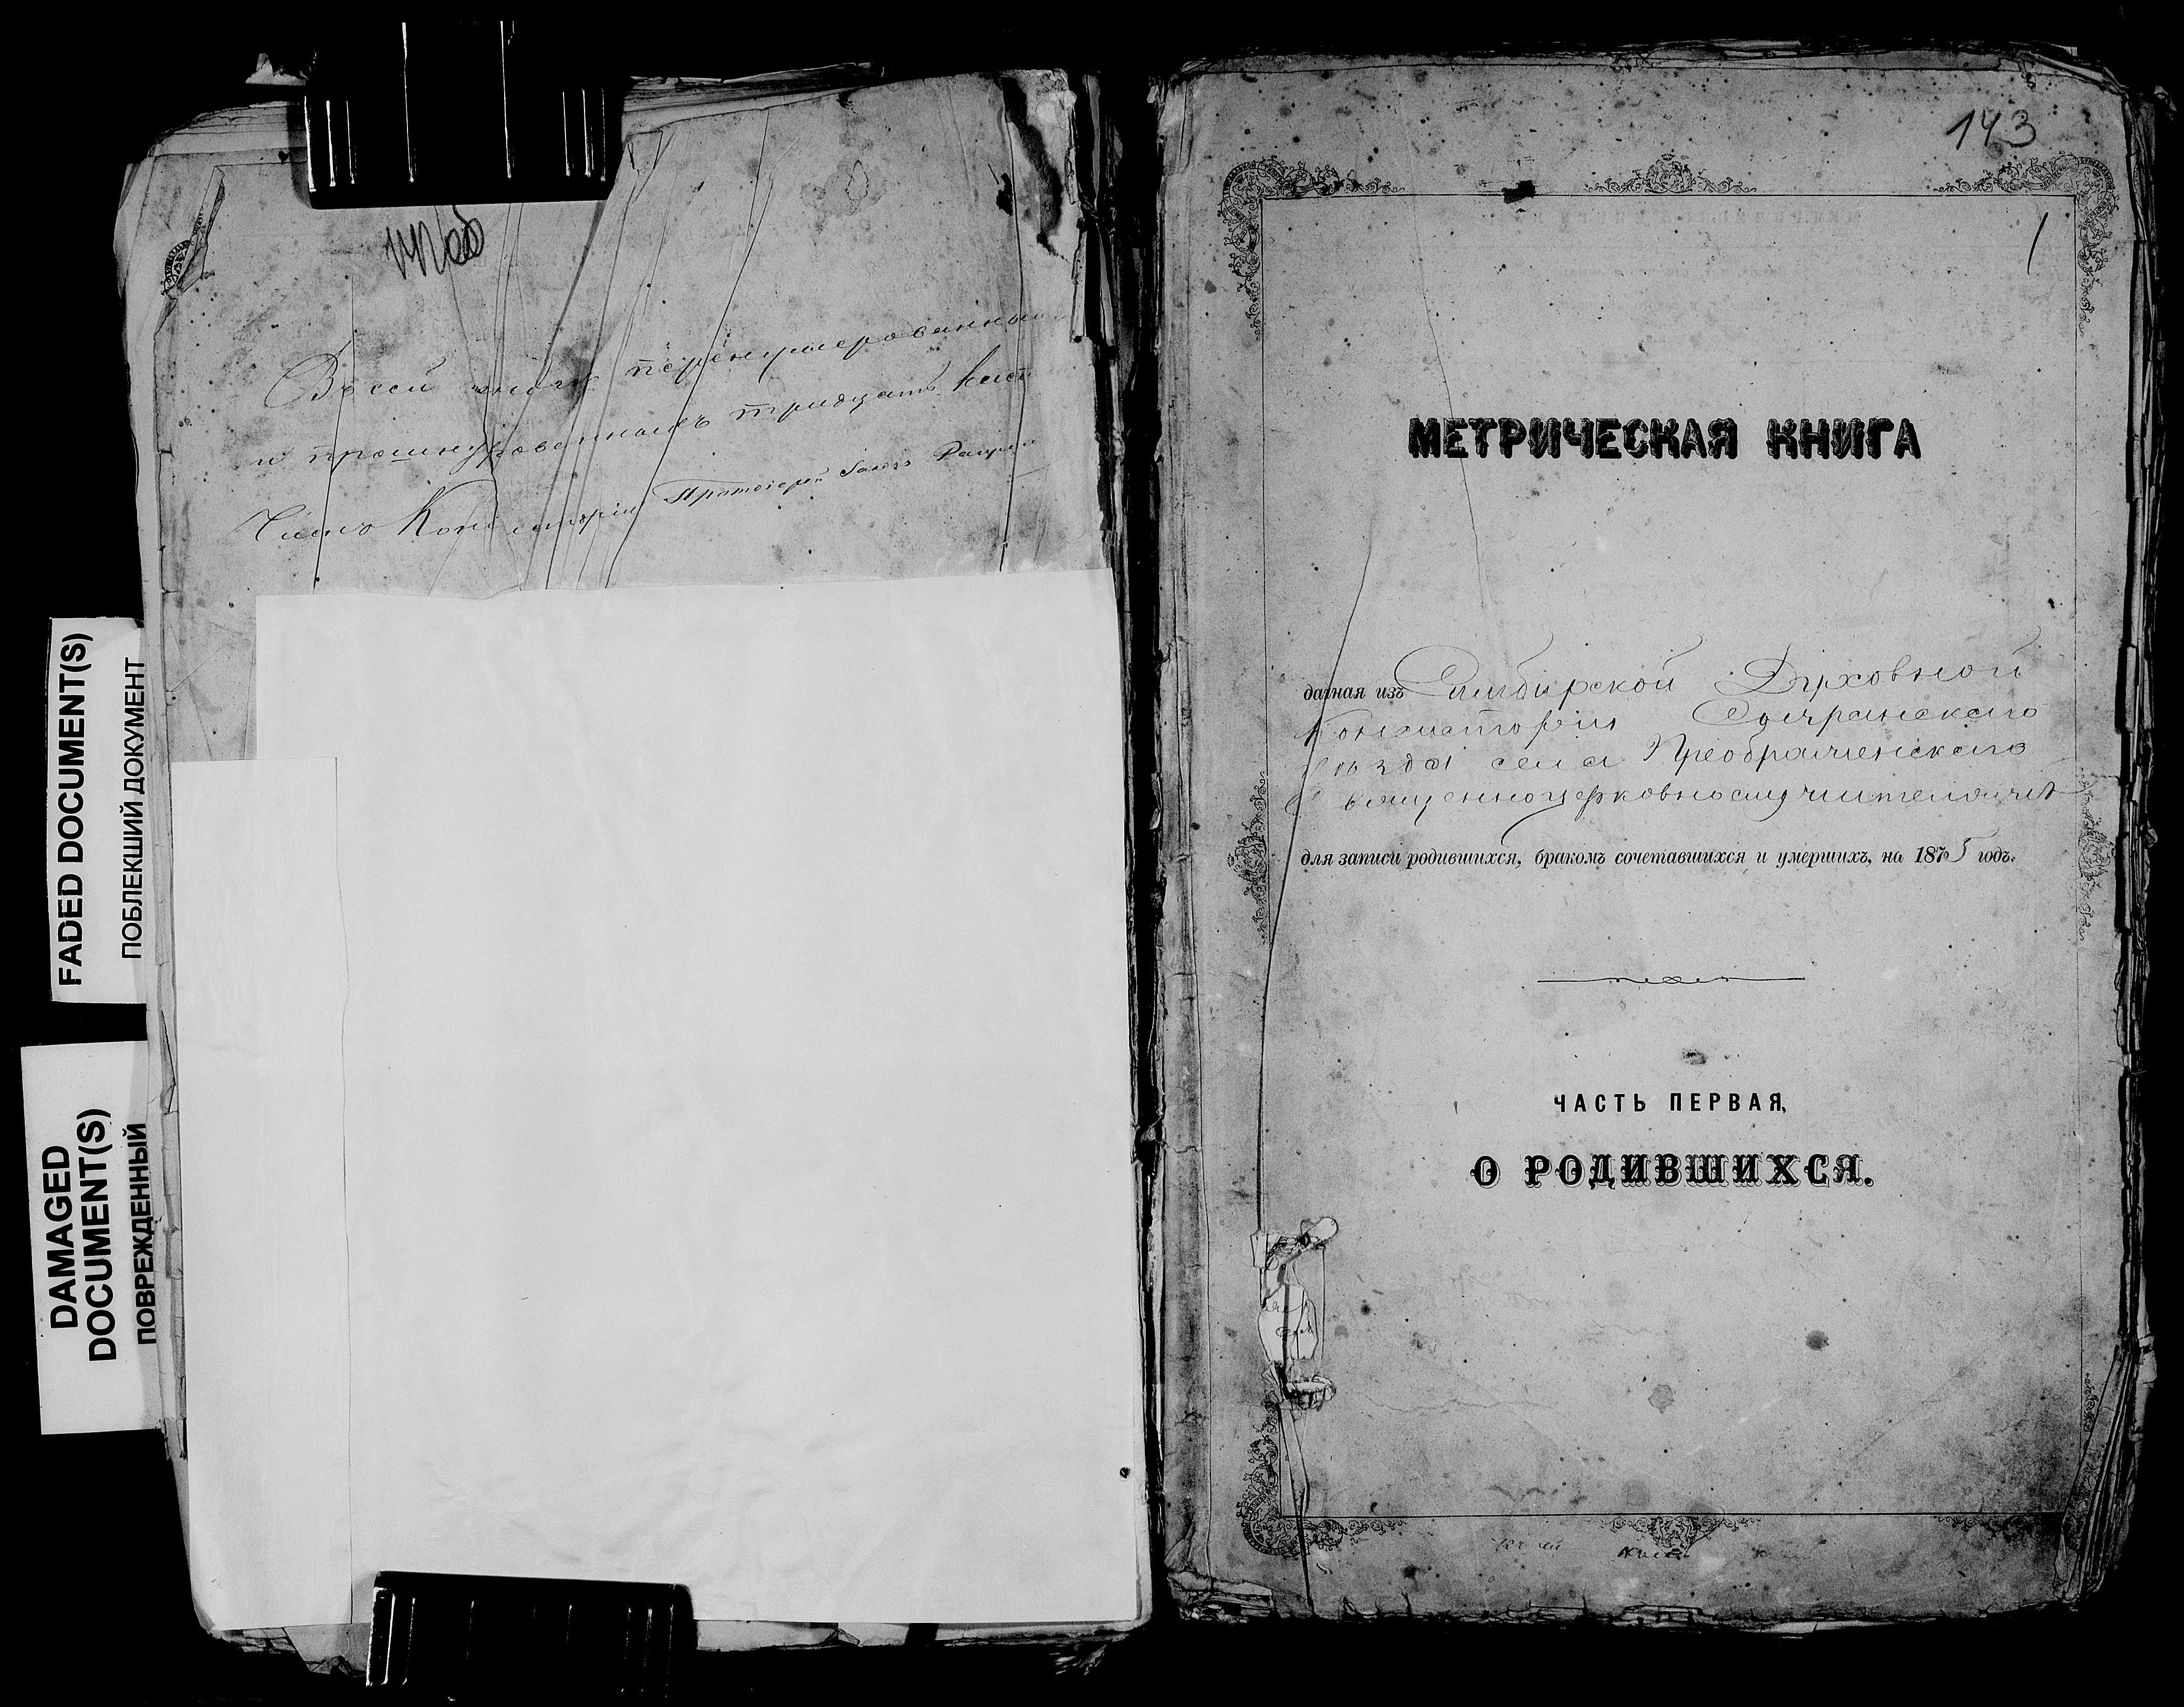 Въ сей книгѣ перенумерованныхъ
и прошнурованныхъ тридцать
Членъ Консисторіи Протоіерей
FADED DOCUMENT(S)
ПОБЛЕКШИЙ ДОКУМЕНТ
DAMAGED
DOCUMENT(S)
ПОВРЕЖДЕННЫЙ
143
1
МЕТРИЧЕСКАЯ КНИГА
данная изъ Симбирской Духовной
Консисторіи Сызранскаго
уѣзда села Преображенскаго
Священноцерковнослужителямъ
для записи родившихся, бракомъ сочетавшихся и умершихъ, на 1875 годъ.
ЧАСТЬ ПЕРВАЯ,
О РОДИВШИХСЯ.